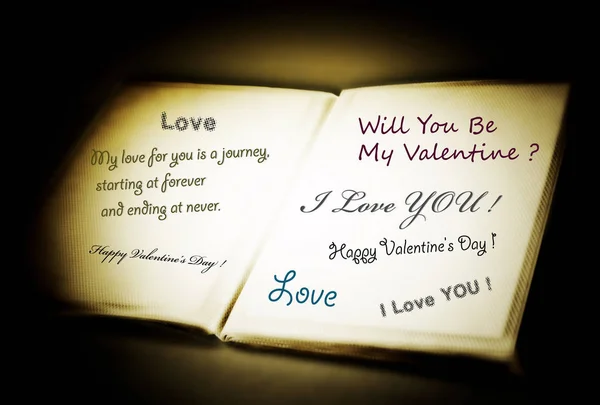 Love
My love for you is a journey,
starting at forever
and ending at never.
Happy Valentine's Day !
Will You Be
My Valentine ?
I Love YOU !
Happy Valentine's Day !
Love
I Love YOU !